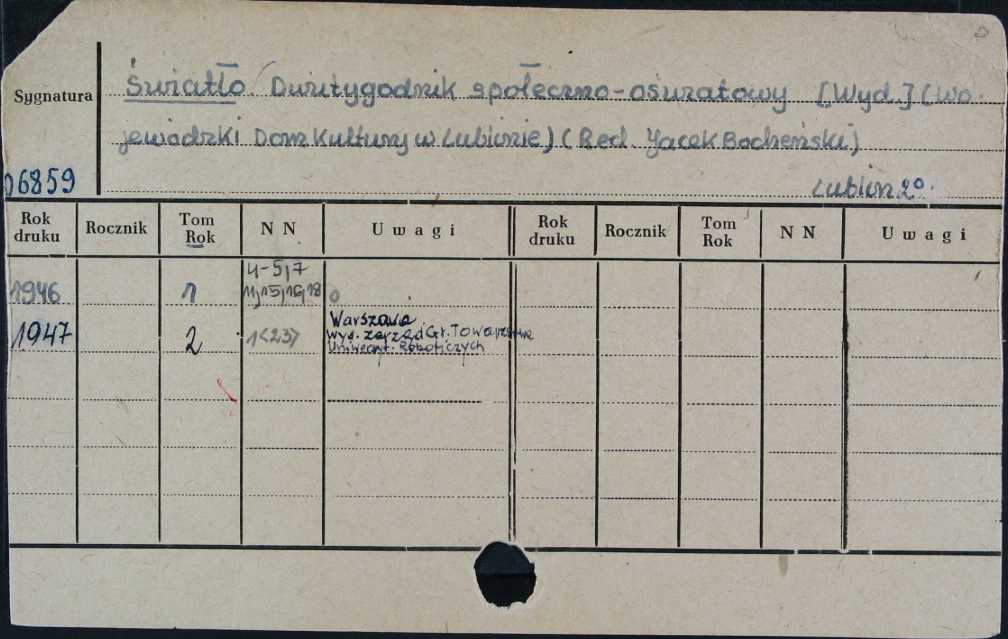 Światło. Dwutygodnik społeczno-oświatowy [Wyd.] (Wo-
Sygnatura
jewódzki Dom Kultury w Lublinie) (Red. Jacek Bocheński)
06859
Lublin 2°.
Rok druku Rocznik Tom Rok N N Uwagi Rok druku Rocznik Tom Rok N N Uwagi
4-5,7
1946 1 11,15,16,18
Warszawa
1947 2 1<23> Wyd. Zarząd Gł. Towarzystwa
Uniwersyt. Robotniczych